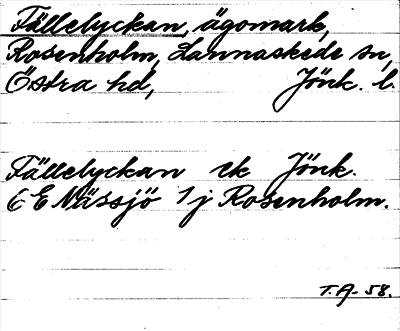 Fällelyckan, ägomark,
Rosenholm, Lannaskede sn,
Östra hd, Jönk. l.
Fällelyckan ek Jönk.
6 E Nässjö 1 j Rosenholm.
T.A-58.